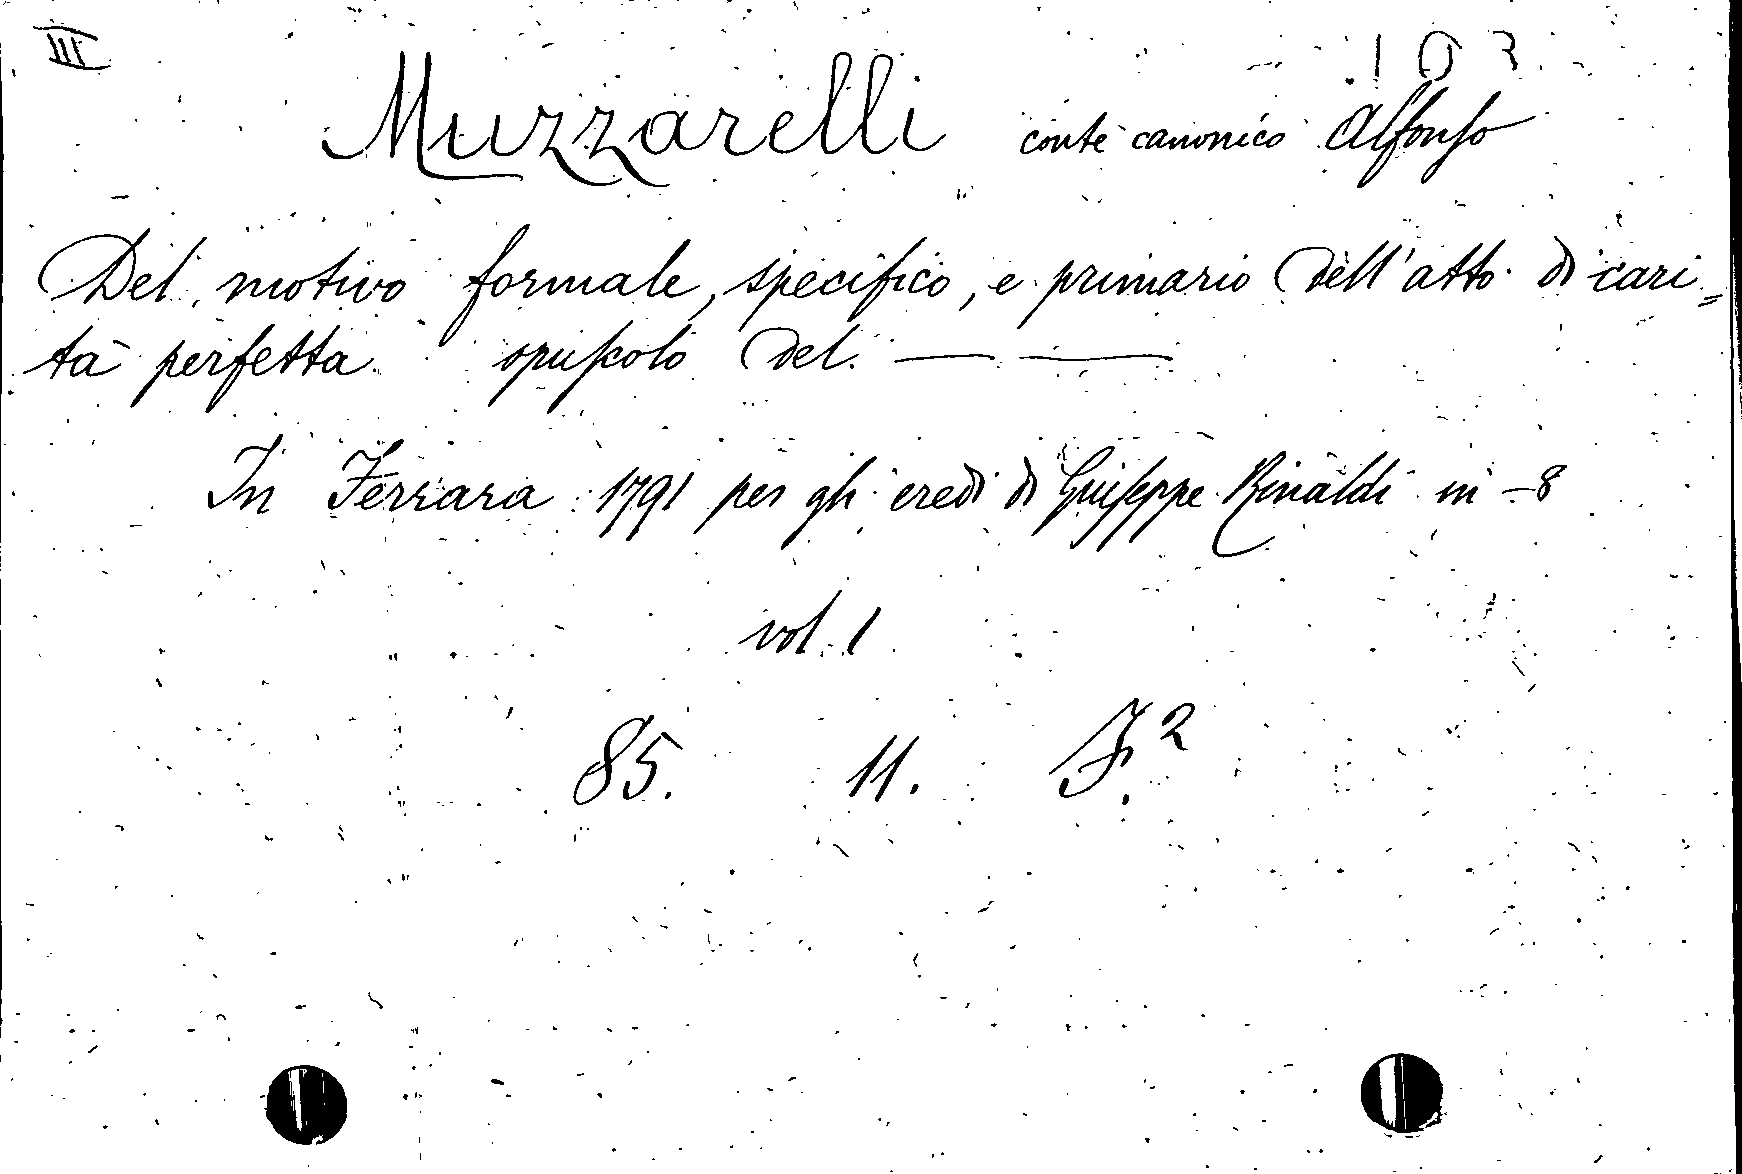 III 103
Muzzarelli conte canonico Alfonso
Del motivo formale, specifico, e primario dell'atto di cari=
tà perfetta opuscolo del. — —
In Ferrara 1791 per gli eredi di Giuseppe Rinaldi in -8
vol. 1
85. 11. F.²